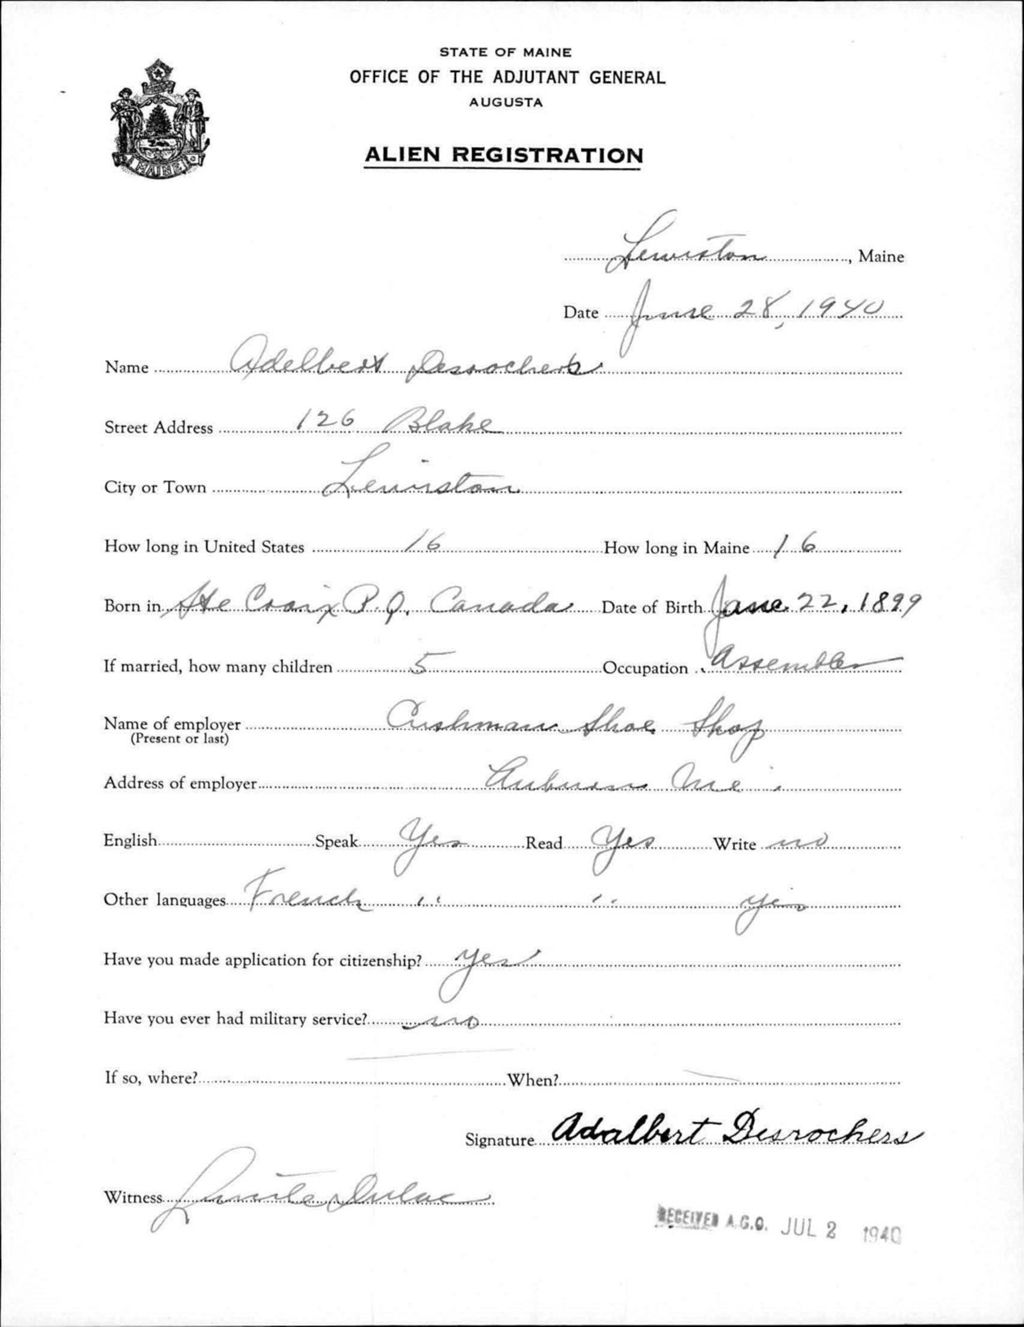 STATE OF MAINE
OFFICE OF THE ADJUTANT GENERAL
AUGUSTA
ALIEN REGISTRATION
MAINE
Lewiston, Maine
Date June 28, 1940
Name Adelbert Desrochers
Street Address 126 Blake
City or Town Lewiston
How long in United States 16 How long in Maine 16
Born in Ste Croix P.Q. Canada Date of Birth June 22, 1899
If married, how many children 5 Occupation Assembler
Name of employer Cushman Shoe Shop
(Present or last)
Address of employer Auburn Me.
English Speak Yes Read Yes Write no
Other languages French " " yes
Have you made application for citizenship? yes
Have you ever had military service? no
If so, where? — When? —
Signature Adalbert Desrochers
Witness Dulac
RECEIVED A.G.O. JUL 2 1940